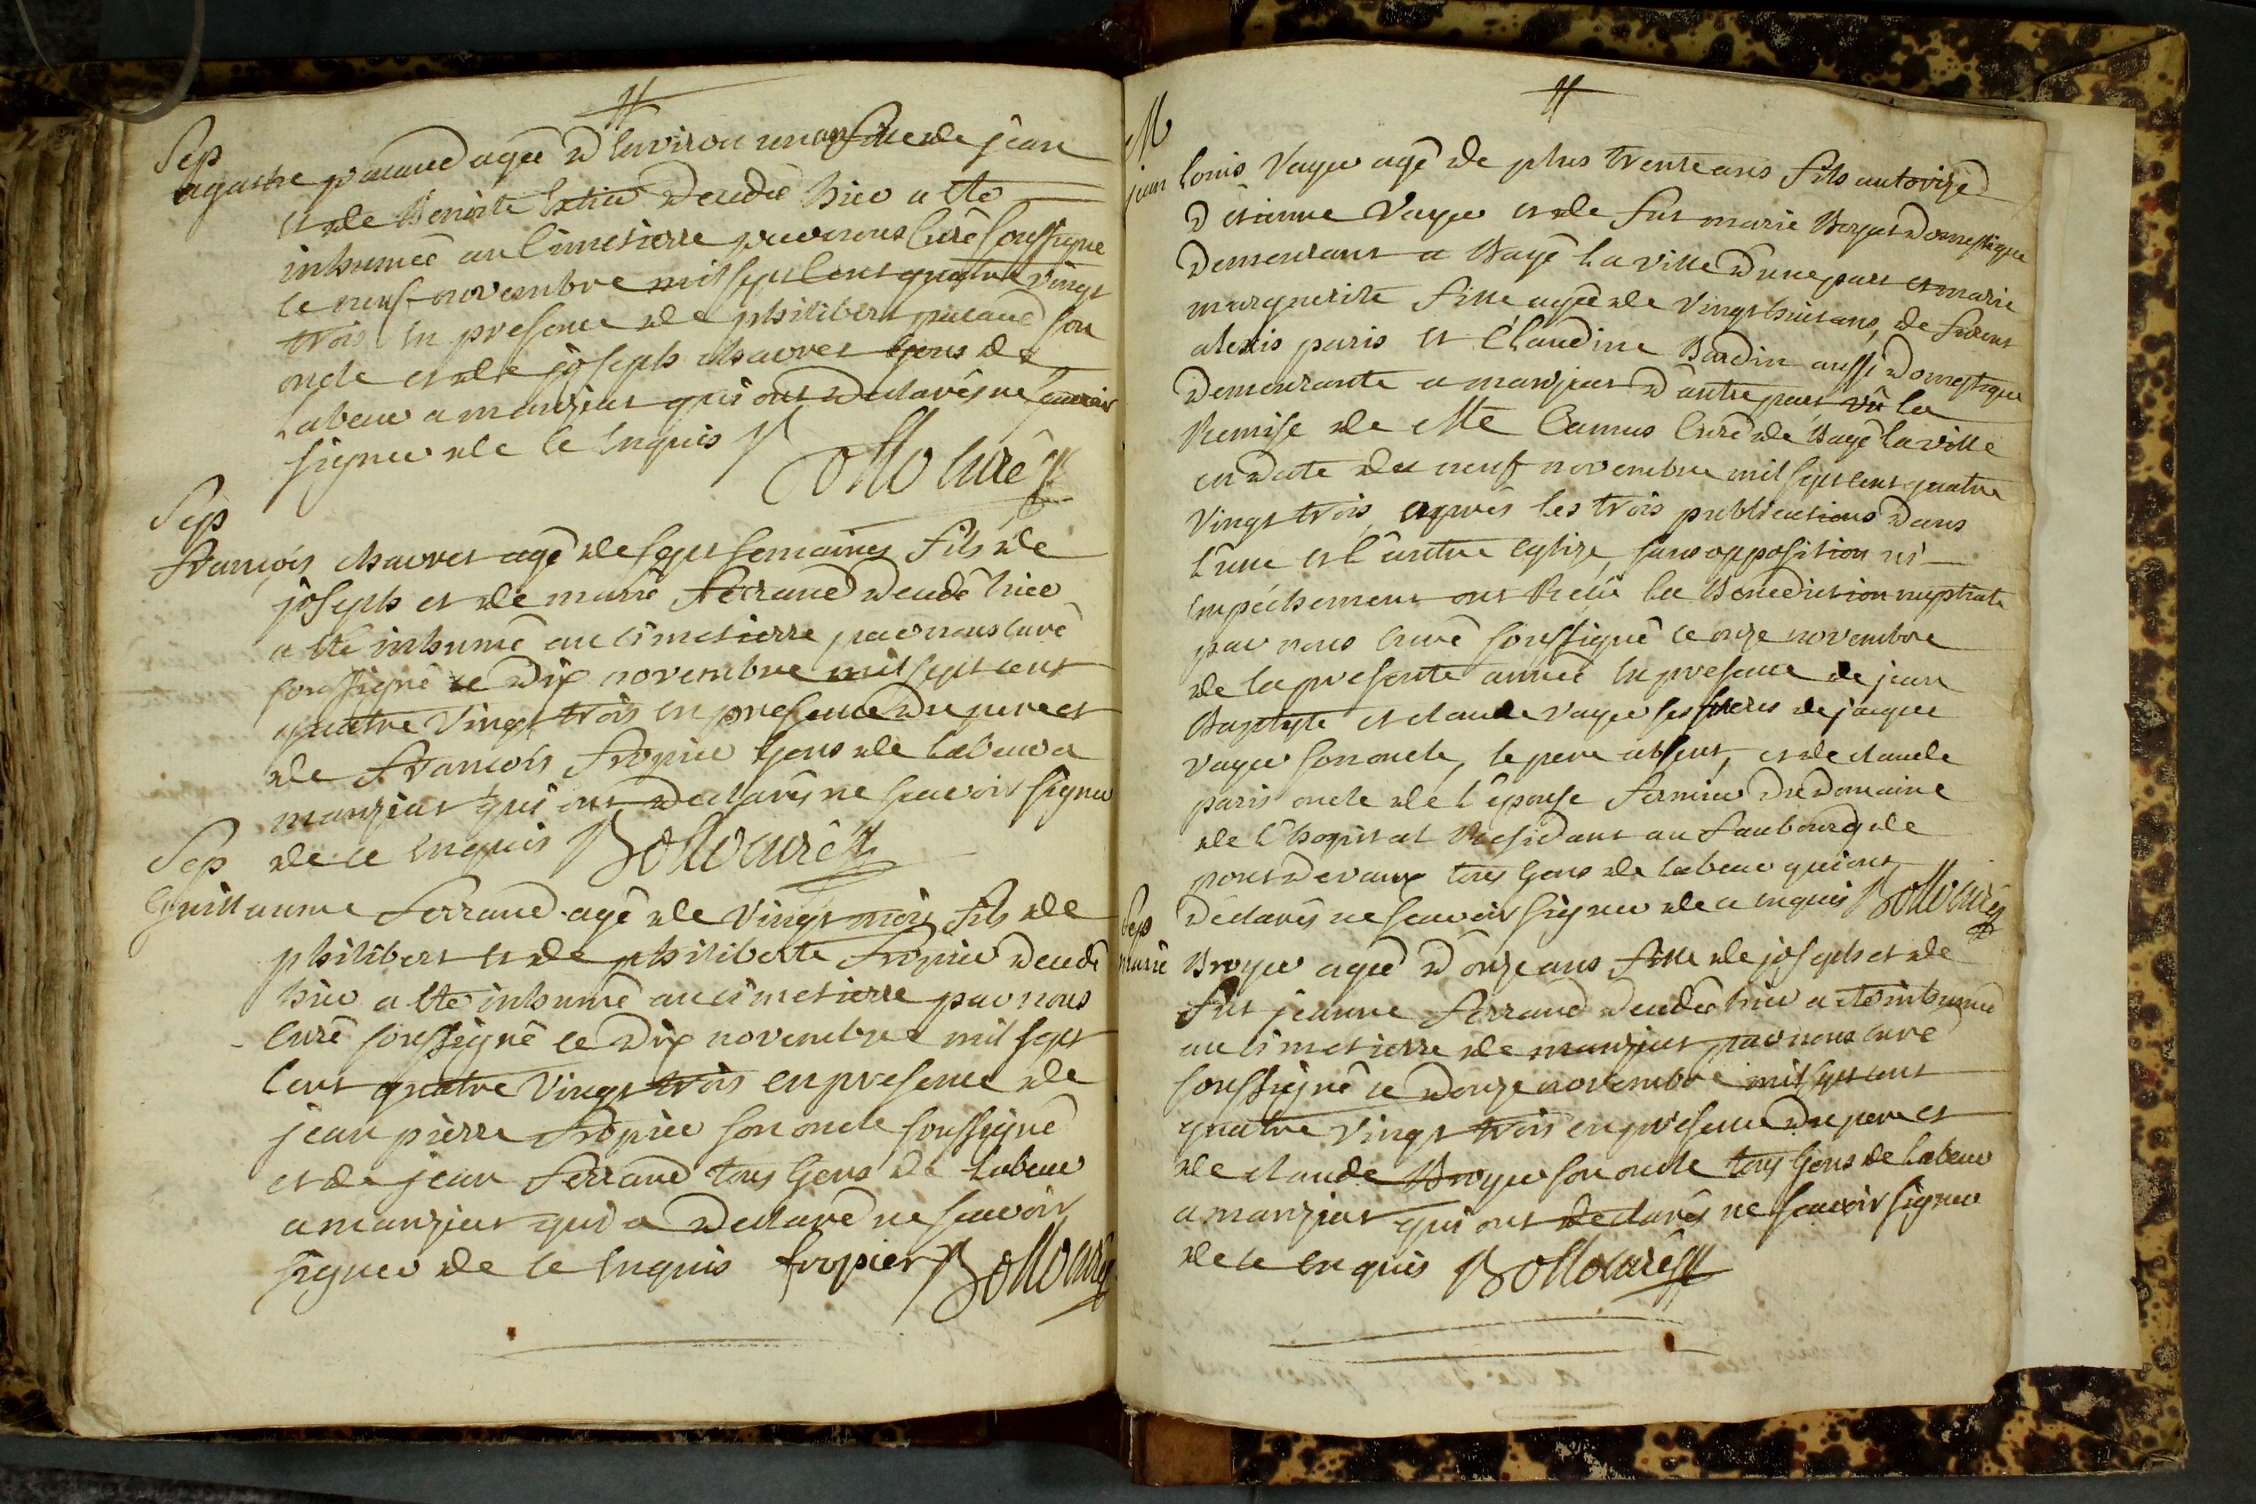 Sep
agathe pacaud agée d'Environ un an fille de jean
et de Benoite decedée hier a été
inhumée au Cimetierre par nous Curé Soussigné
le neuf novembre mil sept Cent quatre Vingt
trois En presence de philibert pacaud son
oncle et de joseph chavret Gens de
Labeur a manziat qui ont declarés ne Sçavoir
signer de ce Enquis Bollo Curé
Sep
François chavret agé de sept semaines fils de
joseph et de marie Ferrand decedé hier
a été inhumé au cimetierre par nous curé
soussigné le Dix novembre mil sept cent
quatre Vingt trois en presence du pere et
de François fropier Gens de labeur a
manziat qui ont declarés ne sçavoir signer
Sep de ce Enquis Bollo curé
Guillaume Ferrand agé de Vingt mois fils de
philibert et de philiberte fropier decedé
hier a été inhumé au cimetierre par nous
Curé soussigné le Dix novembre mil sept
Cent quatre Vingt trois en presence de
jean pierre fropier son oncle soussigné
et de jean Ferrand tous Gens de Labeur
a manziat qui a declaré ne sçavoir
signer de ce Enquis fropier Bollo curé
M
jean Louis Vayer agé de plus trente ans fils autorizé
d'étienne Vayer et de fut marie Boyat Domestique
demeurant a Bagé la ville d'une part et marie
marguerite fille agée de Vingt huit ans, de furent
alexis paris et Claudine Bardin aussi domestique
demeurante a manziat d'autre part vû la
Remise de Mre Camus Curé de Bagé la ville
en date du neuf novembre mil sept cent quatre
Vingt trois, après les trois publications dans
l'une et l'autre eglize, sans opposition ni
Empéchement ont Reçû la Benediction nuptiale
par nous Curé soussigné ce onze novembre
de la presente année En presence de jean
Baptiste et claude Vayer ses freres de jacque
Vayer son oncle, le pere absent, et de claude
paris oncle de l'épouse fermier du domaine
de l'hopital Residant au Faubourg de
pont de vaux tous Gens de labeur qui ont
declarés ne sçavoir signer de ce enquis Bollo curé
Sep
marie Broyer agée d'onze ans fille de joseph et de
fut jeanne Ferrand decedée hier a été inhumée
au cimetierre de manziat par nous curé
soussigné ce douze novembre mil sept cent
quatre Vingt trois en presence du pere et
de claude Broyer son oncle tous Gens de labeur
a manziat qui ont declarés ne sçavoir signer
de ce enquis Bollo curé